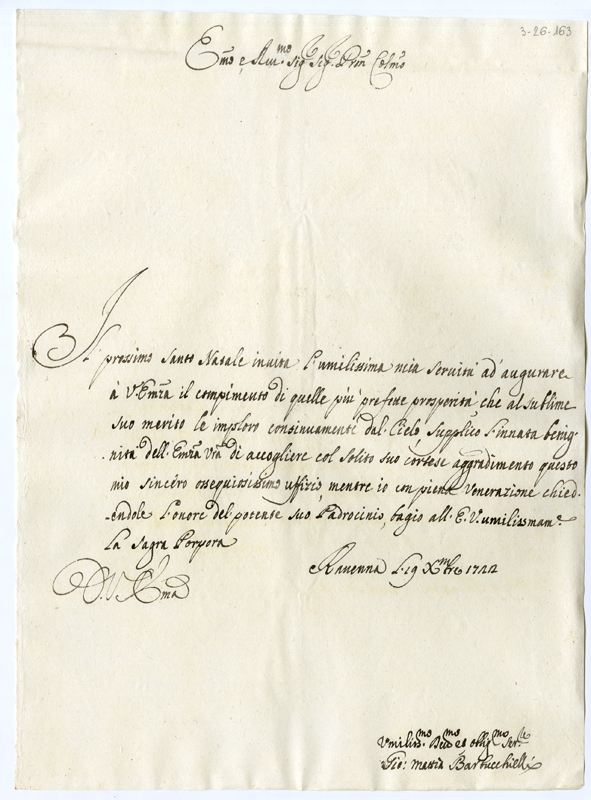 3-26-163
Emo e Rmo. Sig. Sig. Pron Colmo
Il prossimo Santo Natale invita l'umilissima mia servitù ad augurare
à V. Emza il compimento di quelle più prefette prosperità che al sublime
suo merito le imploro continuamente dal Cielo, supplico l'innata benig-
nità dell'Emza Vra di accogliere col solito suo cortese aggradimento questo
mio sincéro ossequiosissimo uffizio, mentre io con piena venerazione chied-
endole l'onore del potente suo Padrocinio, bagio all'E. V. umilissmame
la Sagra Porpora
D. V. Ema
Ravenna l. 19 Xmbre 1722
Umilissmo Devmo ed obligmo Serre
Gio: Mattia Bartucchielli